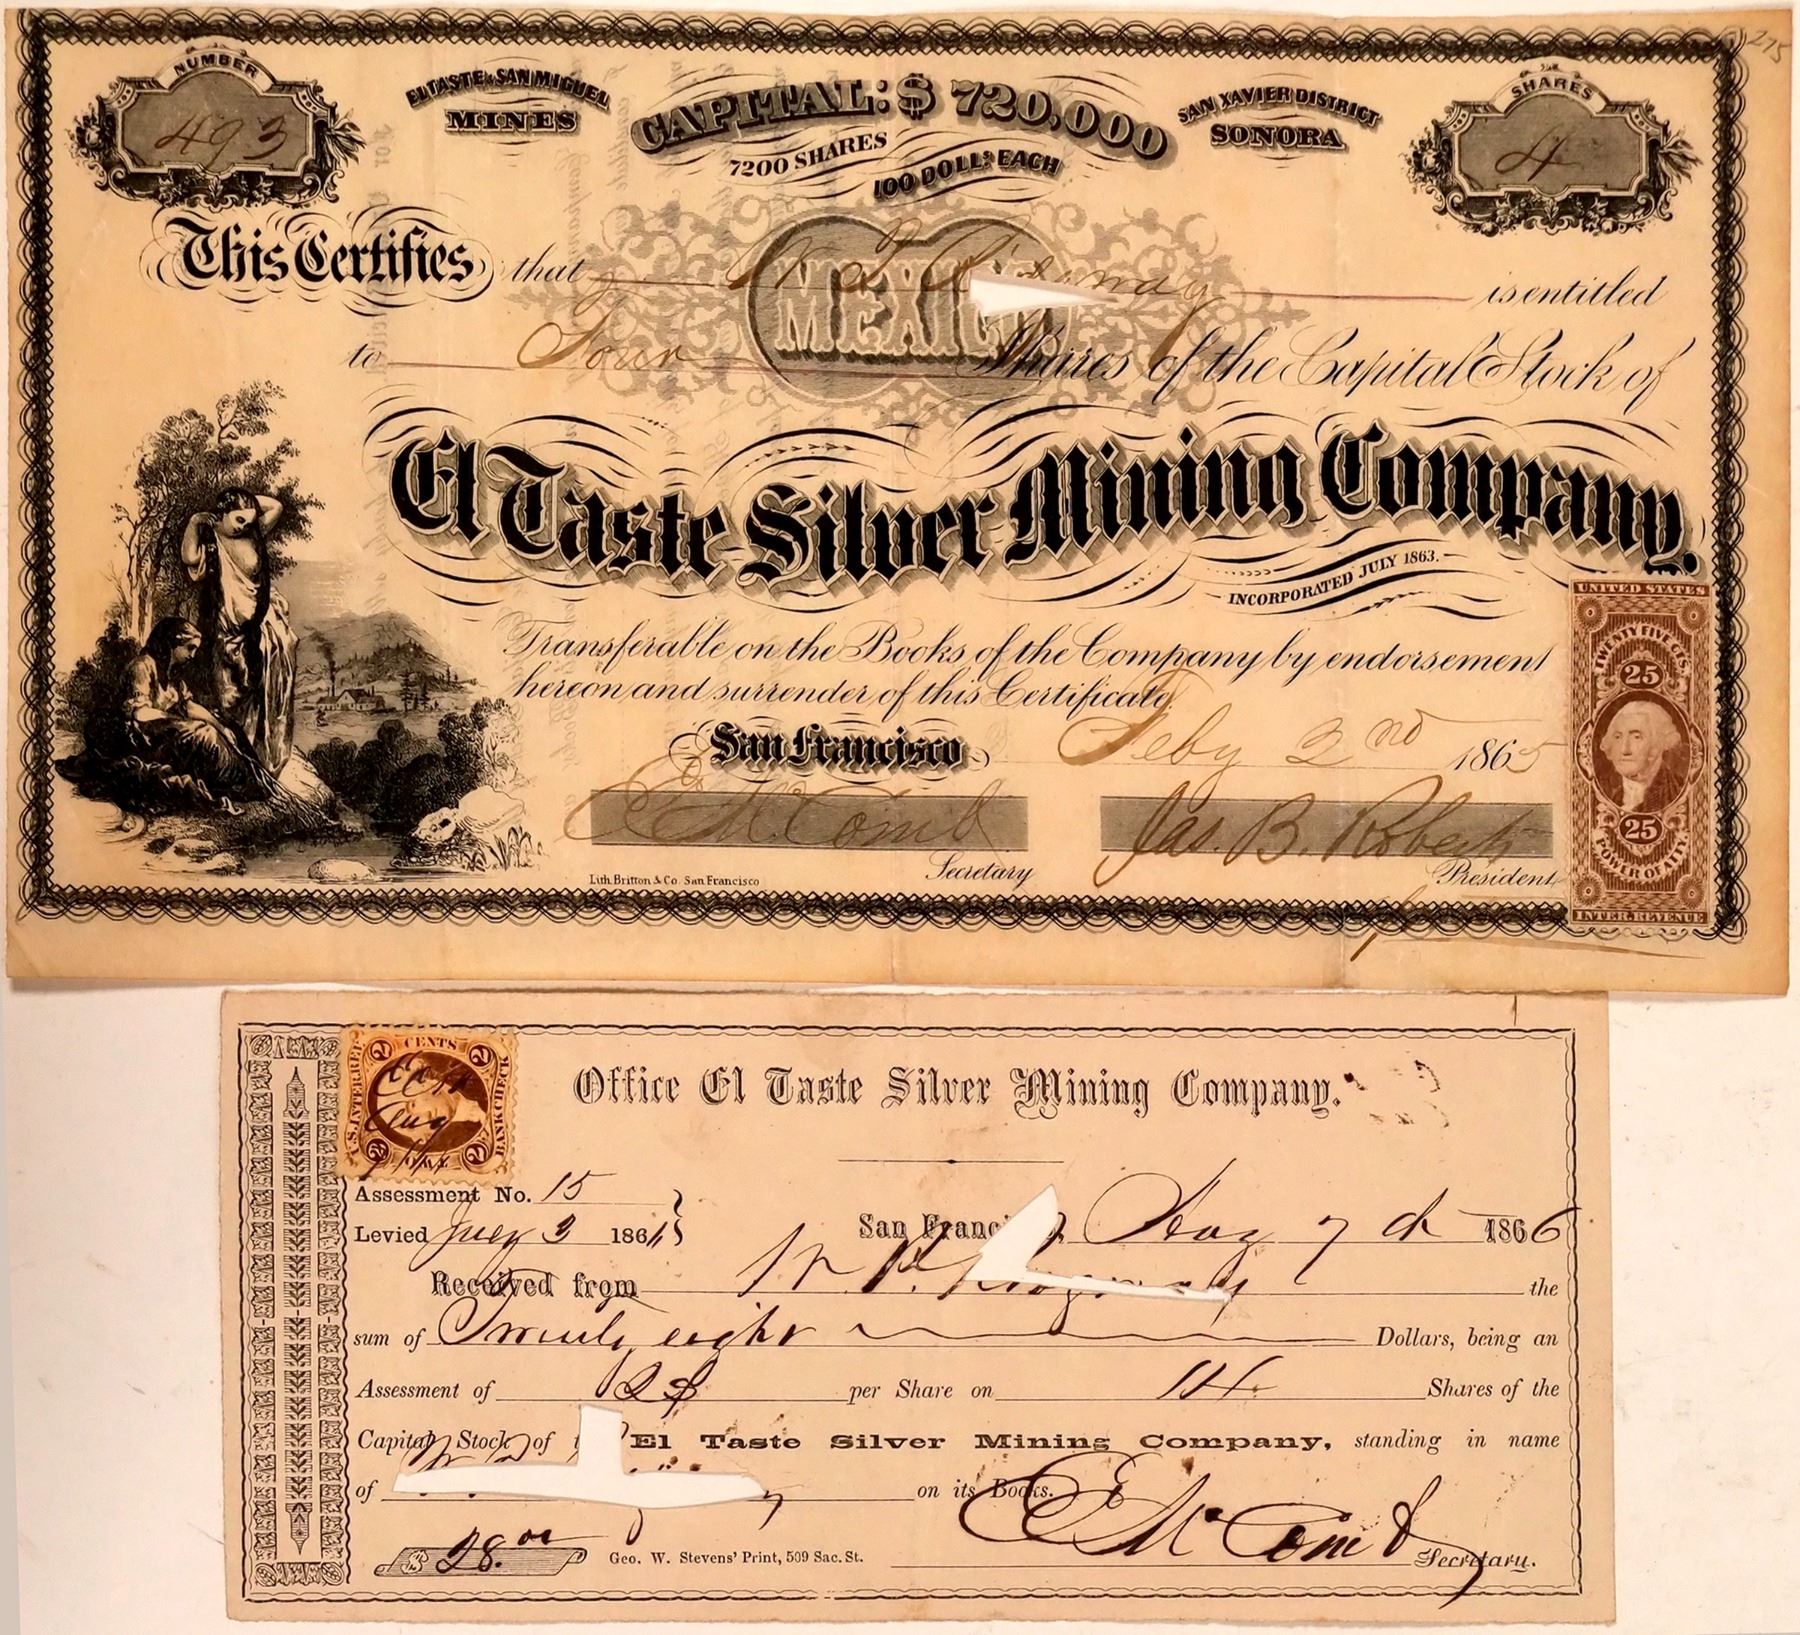 275
NUMBER
493
EL TASTE & SAN MIGUEL
MINES
CAPITAL: $ 720,000
7200 SHARES
100 DOLLS EACH
SAN XAVIER DISTRICT
SONORA
SHARES
4
MEXICO
This Certifies that is entitled
to Four Shares of the Capital Stock of
El Taste Silver Mining Company.
INCORPORATED JULY 1863.
Transferable on the Books of the Company by endorsement
hereon and surrender of this Certificate.
San Francisco Feby 2nd 1865
E McComb
Secretary
Jas. B. Roberts
President
Lith. Britton & Co. San Francisco
UNITED STATES
TWENTY FIVE CTS.
25
25
POWER OF ATTY.
INTER. REVENUE
U.S. INTER. REV.
2 CENTS 2
BANK CHECK
2 2
Aug
Office El Taste Silver Mining Company.
Assessment No. 15
Levied July 3 1866
San Franc Aug 7th 1866
Received from the
sum of Twenty eight Dollars, being an
Assessment of $2 per Share on 14 Shares of the
Capital Stock of El Taste Silver Mining Company, standing in name
of on its Books.
$28.00
Geo. W. Stevens' Print, 509 Sac. St.
E McComb Secretary.